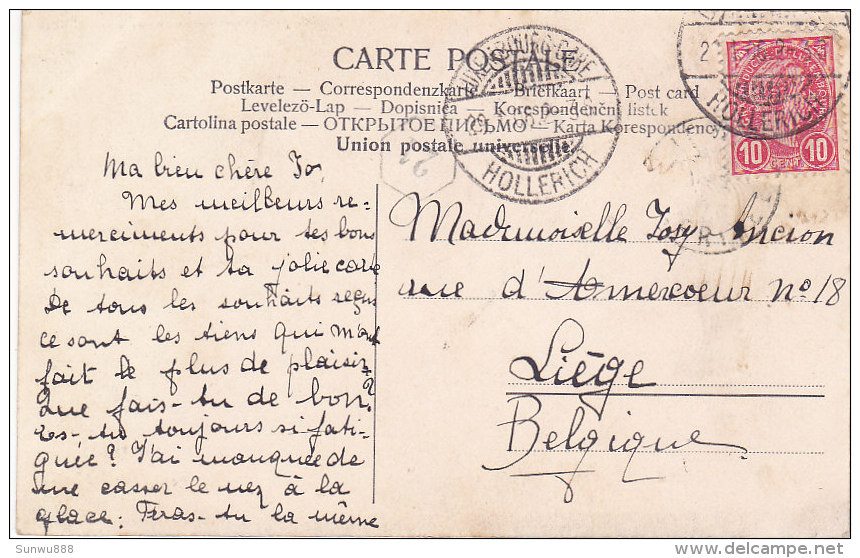 CARTE POSTALE
Postkarte — Correspondenzkarte — Briefkaart — Post card
Levelezö-Lap — Dopisnica — Korespondenční listek
Cartolina postale — ОТКРЫТОЕ ПИСЬМО — Karta Korespondency
Union postale universelle
HOLLERICH
HOLLERICH
10 CENT. 10
21
Ma bien chère Jo,
Mes meilleurs re-
merciments pour tes bons
souhaits et ta jolie carte
De tous les souhaits reçus
ce sont les tiens qui m'ont
fait le plus de plaisir
Que fais-tu de bon?
es-tu toujours si fati-
guée? J'ai manquée de
me casser le nez à la
glace: Feras-tu la même
Mademoiselle Josy Ancion
rue d'Amercoeur no 18
Liège
Belgique
Sunwu888
delcampe.net